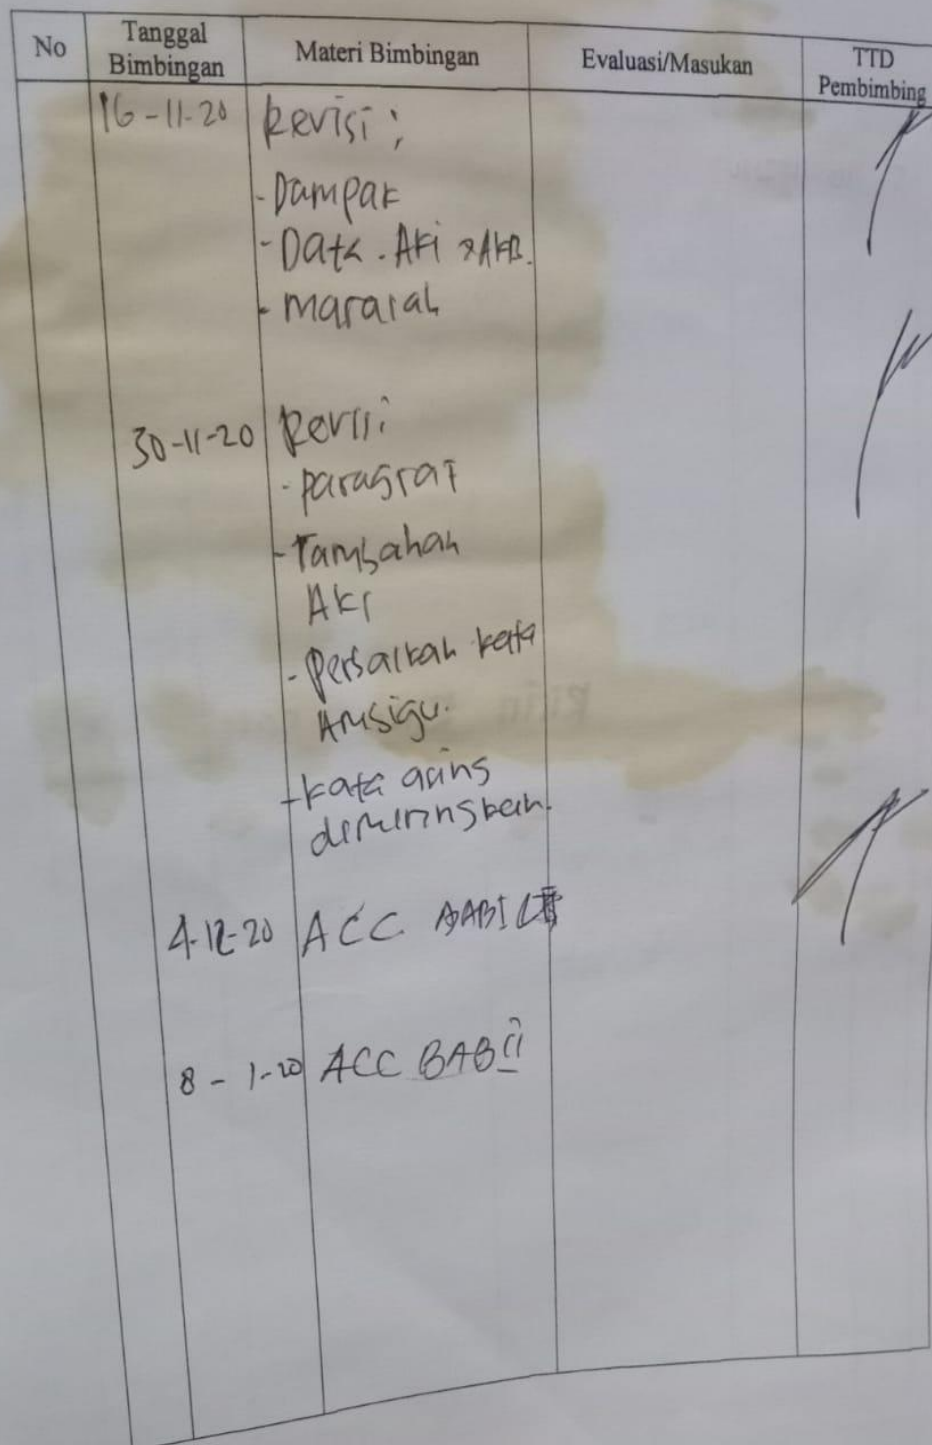 No Tanggal Bimbingan Materi Bimbingan Evaluasi/Masukan TTD Pembimbing
16-11-20 Revisi;
- Dampak
- Data. AKi & AKB.
- masalah
30-11-20 Revisi
- paragraf
- Tambahan
AKI
- Perbaikan kata
Ambigu.
- kata asing
dimiringkan.
4-12-20 ACC BAB I
8-1-20 ACC BAB II